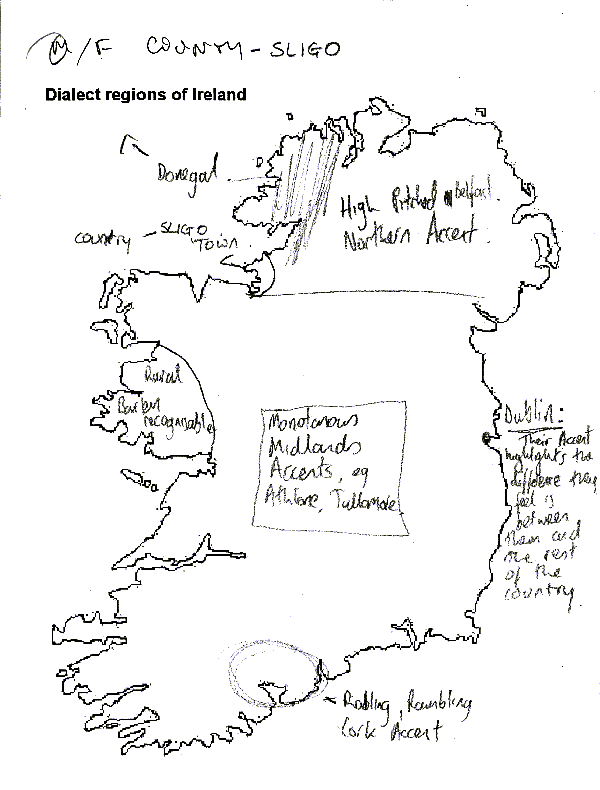 M/F COUNTY - SLIGO
Dialect regions of Ireland
Donegal
High Pitched Belfast
Northern Accent.
country - SLIGO
TOWN
Rural
recognisable
Monotonous
Midlands
Accents, eg
Athlone, Tullamore
Dublin:
Their Accent
highlights the
difference they
feel is
between
them and
the rest
of the
country.
Rambling
Cork Accent.